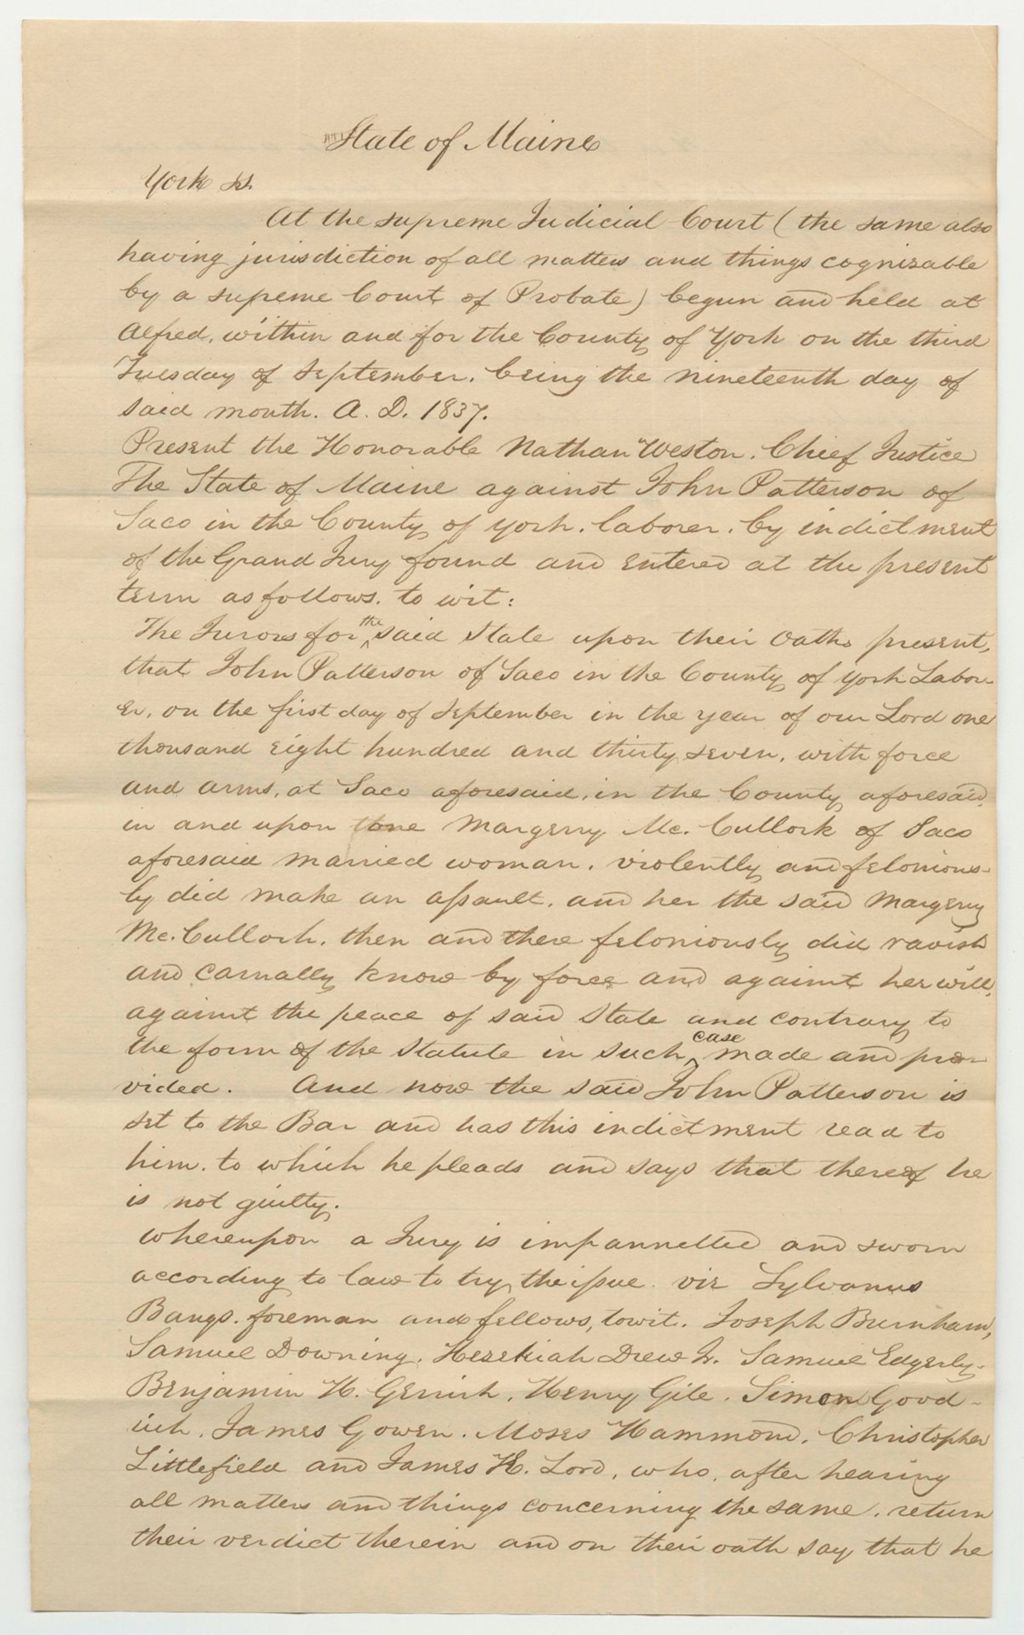 State of Maine
York ss.
At the supreme Judicial Court (the same also
having jurisdiction of all matters and things cognizable
by a supreme Court of Probate) begun and held at
Alfred, within and for the County of York on the third
Tuesday of September, being the nineteenth day of
said month. A. D. 1837.
Present the Honorable Nathan Weston, Chief Justice
The State of Maine against John Patterson of
Saco in the County of York, laborer, by indictment
of the Grand Jury found and entered at the present
term as follows, to wit:
The Jurors for the said State upon their Oaths present,
that John Patterson of Saco in the County of York Labor-
er, on the first day of September in the year of our Lord one
thousand eight hundred and thirty seven, with force
and arms, at Saco aforesaid, in the County aforesaid
in and upon one Margerry Mc. Cullock of Saco
aforesaid married woman, violently and felonious-
ly did make an assault, and her the said Margerry
Mc. Culloch, then and there feloniously did ravish
and carnally know by force and against her will,
against the peace of said State and contrary to
the form of the Statute in such case made and pro-
vided. And now the said John Patterson is
set to the Bar and has this indictment read to
him, to which he pleads and says that thereof he
is not guilty.
Whereupon a Jury is impannelled and sworn
according to law to try the issue viz Sylvanus
Bangs, foreman and fellows, towit, Joseph Burnham,
Samuel Downing, Hezekiah Drew Jr. Samuel Edgerly,
Benjamin H. Gerrish, Henry Gile, Simon Good-
ich, James Gowen, Moses Hammond, Christopher
Littlefield and James H. Lord, who, after hearing
all matters and things concerning the same, return
their verdict therein and on their oath say that he